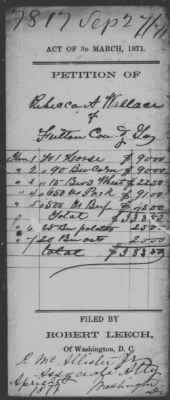 7817 Sep 27/71
ACT OF 3D MARCH, 1871.
PETITION OF
Rebecca A Wallace
of
Fulton Co
Item 1 For 1 Horse $ 90 00
" 2 " 90 Bus Corn $ 90 00
" 3 " 15 Bus Wheat $ 22 50
" 4 " 650 lbs Pork $ 91 00
" 5 " 500 lbs Beef $ 45 00
Total $ 338 50
" 6 25 Bus potatoes 25 0
" 7 20 Bus oats 20 00
Total $ 383 50
FILED BY
ROBERT LEECH,
Of Washington, D. C.
R. McAllister Jr
Atty
Washington